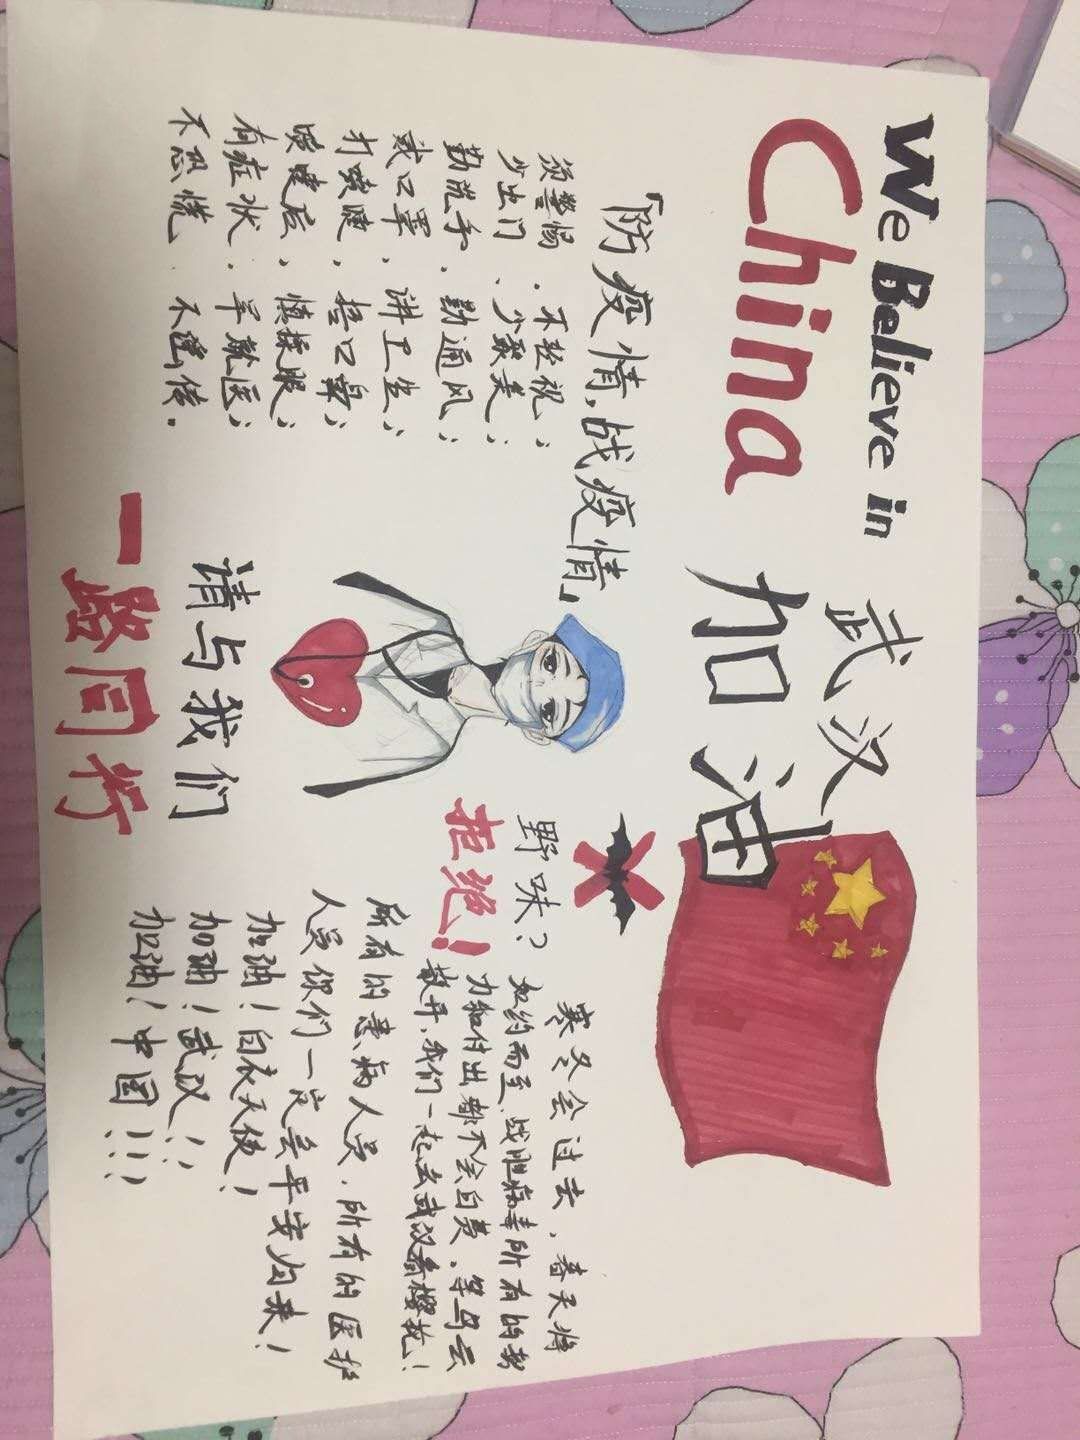 We Believe in
China
武汉
加油
「防疫情,战疫情」
须警惕,不轻视;
少出门,少聚美;
勤洗手,勤通风;
戴口罩,讲卫生;
打喷嚏,捂口鼻;
喷嚏后,慎揉眼;
有症状,早就医;
不恐慌,不谣传。
请与我们
一路同行
野味?
拒绝!
寒冬会过去,春天将
如约而至,战胜病毒所有的努
力和付出都不会白费,等乌云
散开,我们一起去武汉看樱花!
所有的患病人员,所有的医护
人员你们一定会平安归来!
加油!白衣天使!
加油!武汉!!
加油!中国!!!